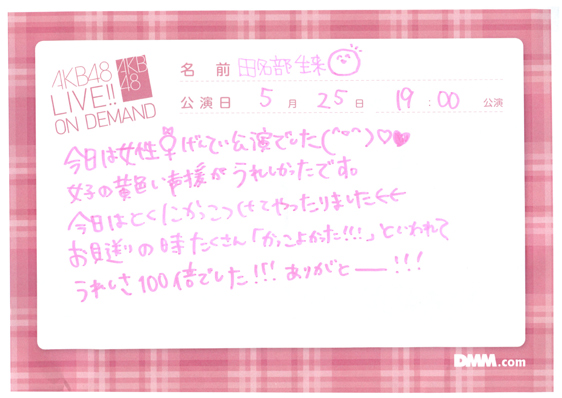 AKB48
LIVE!!
ON DEMAND
AKB
48
名 前 田名部生来
公演日 5 月 25 日 19 : 00 公演
今日は女性♀げんてい公演でした(^o^)♡♥
女子の黄色い声援がうれしかったです。
今日はとくにかっこつけてやったりました←←
お見送りの時たくさん「かっこよかった!!!」といわれて
うれしさ100倍でした!!! ありがとー!!!
DMM.com